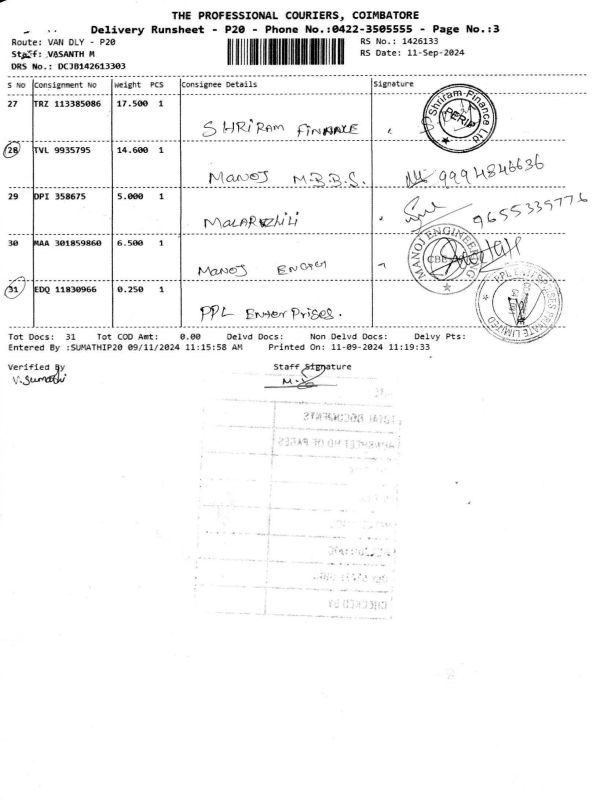 THE PROFESSIONAL COURIERS, COIMBATORE
Delivery Runsheet - P20 - Phone No.:0422-3505555 - Page No.:3
Route: VAN DLY - P20 RS No.: 1426133
Staff: VASANTH M RS Date: 11-Sep-2024
DRS No.: DCJB142613303
S No Consignment No Weight PCS Consignee Details Signature
27 TRZ 113385086 17.500 1
SHRIRAM FINANCE Shriram-Finance Ltd
28 TVL 9935795 14.600 1
MANOJ M.B.B.S. 9994846636
29 DPI 358675 5.000 1
9655335776
30 MAA 301859860 6.500 1
MANOJ MANOJ ENGINEERING CBE
31 EDQ 11830966 0.250 1
PPL Enter Prises. PPL ENTERPRISES PRIVATE LIMITED
Tot Docs: 31 Tot COD Amt: 0.00 Delvd Docs: Non Delvd Docs: Delvy Pts:
Entered By :SUMATHIP20 09/11/2024 11:15:58 AM Printed On: 11-09-2024 11:19:33
Verified By Staff Signature
V. Sumathi
TOTAL DOCUMENTS
NO OF PAGES
CHECKED BY